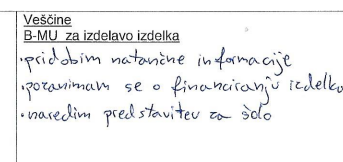 Veščine
B-MU za izdelavo izdelka
·pridobim natančne informacije
·pozanimam se o financiranju izdelka
·naredim predstavitev za šolo